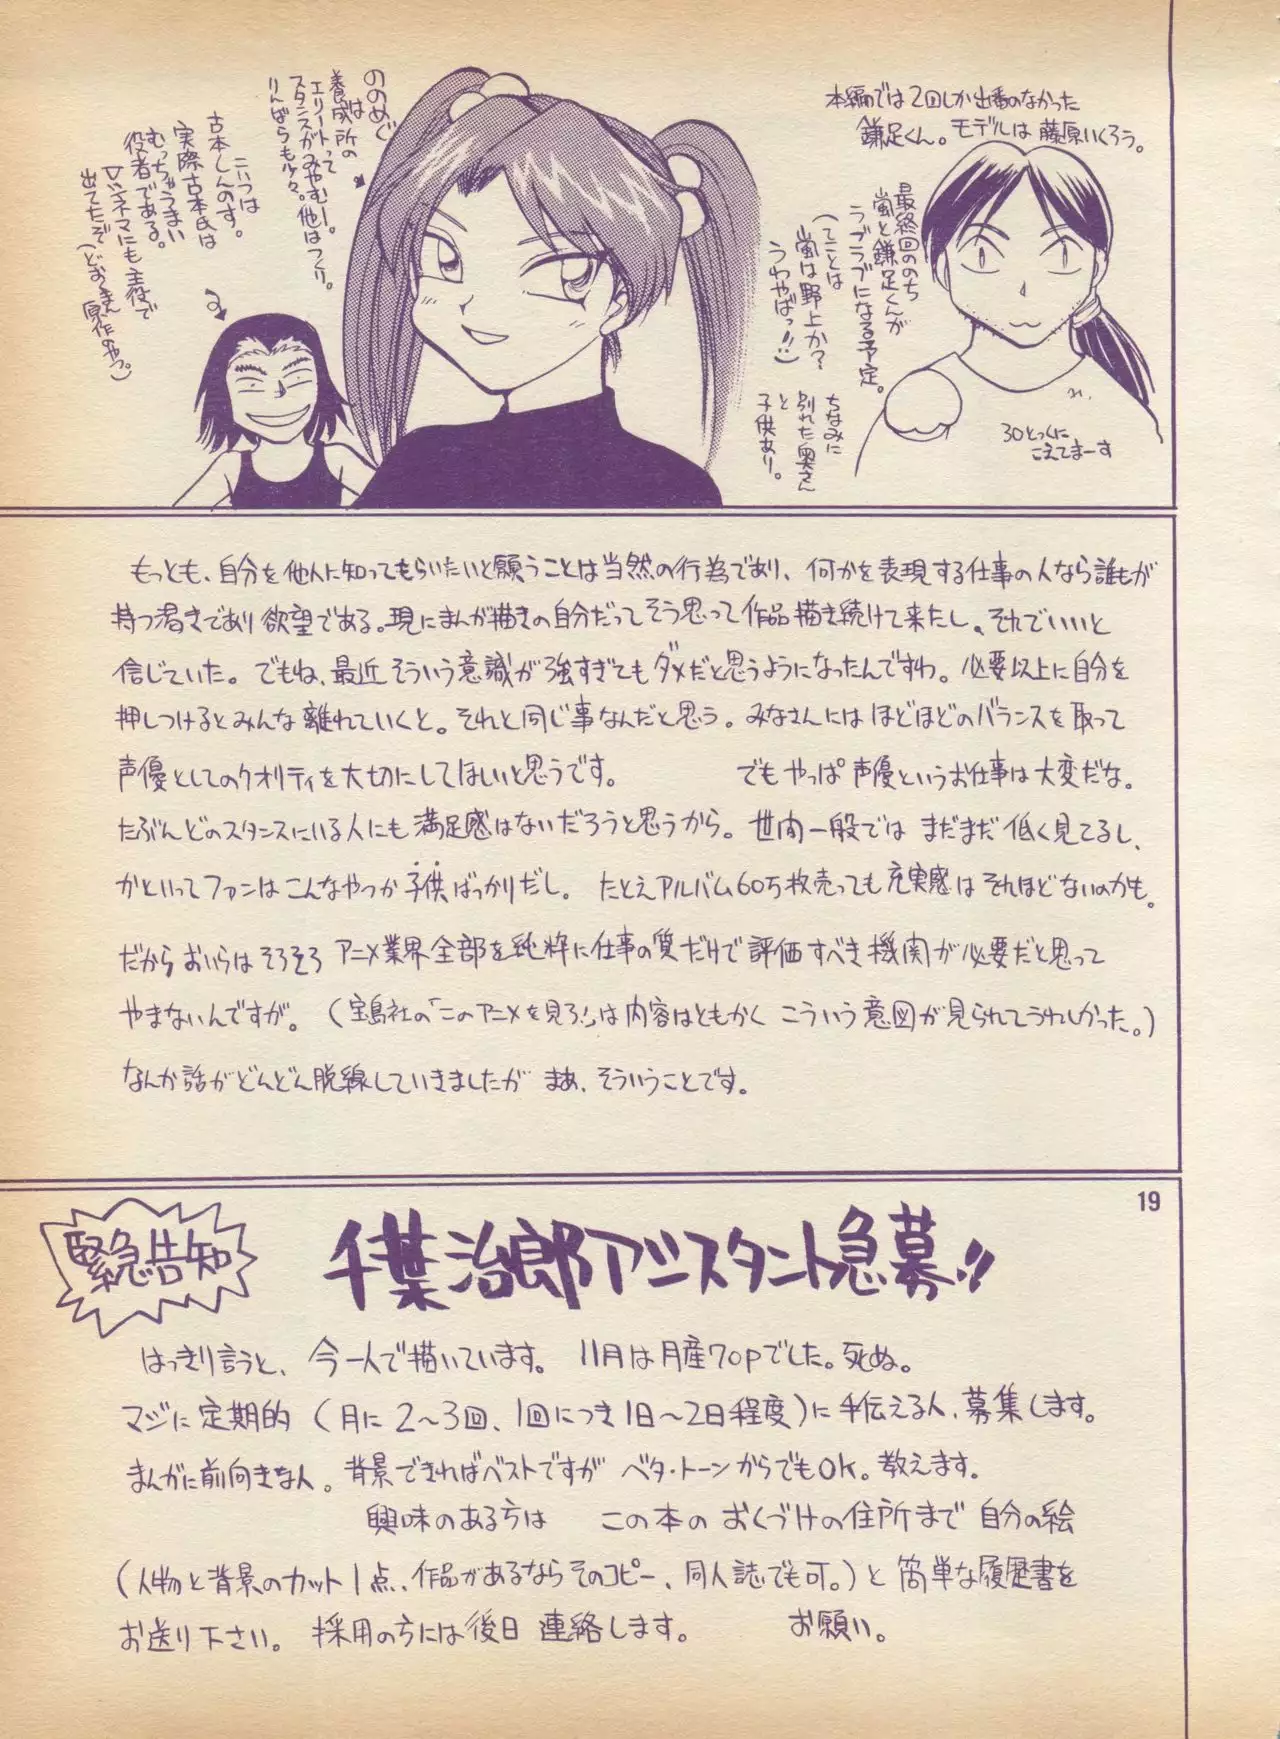 本編では2回しか出番のなかった
鎌足くん。モデルは藤原いくろう。
最終回ののち
嵐と鎌足くんが
ラブラブになる予定。
(てことは
嵐は野上か?
うわやばっ!!)
ちなみに
別れた奥さん
と
子供あり。
30とっくに
こえてまーす
ののめぐ
は
養成所の
エリートって
スタンスがみやむー。他はつくり。
りんばらも少々。
こいつは
古本しんのす。
実際古本氏は
むっちゃうまい
役者である。
Vシネマにも主役で
出てたぞ(どおくまん
原作のやつ。)
もっとも、自分を他人に知ってもらいたいと願うことは当然の行為であり、何かを表現する仕事の人なら誰もが
持つ渇きであり欲望である。現にまんが描きの自分だってそう思って作品描き続けて来たし、それでいいと
信じていた。でもね、最近そういう意識が強すぎてもダメだと思うようになったんですわ。必要以上に自分を
押しつけるとみんな離れていくと。それと同じ事なんだと思う。みなさんにはほどほどのバランスを取って
声優としてのクオリティを大切にしてほしいと思うです。 でもやっぱ声優というお仕事は大変だな。
たぶんどのスタンスにいる人にも満足感はないだろうと思うから。世間一般ではまだまだ低く見てるし、
かといってファンはこんなやつか子供ばっかりだし。たとえアルバム60万枚売っても充実感はそれほどないのかも。
だからおいらはそろそろアニメ業界全部を純粋に仕事の質だけで評価すべき機関が必要だと思って
やまないんですが。(宝島社の「このアニメを見ろ!」は内容はともかくこういう意図が見られてうれしかった。)
なんか話がどんどん脱線していきましたがまあ、そういうことです。
19
緊急告知
千葉治郎アシスタント急募!!
はっきり言うと、今一人で描いています。11月は月産70pでした。死ぬ。
マジに定期的(月に2〜3回、1回につき1日〜2日程度)に手伝える人、募集します。
まんがに前向きな人。背景できればベストですがベタ・トーンからでもOK。教えます。
興味のある方は この本のおくづけの住所まで自分の絵
(人物と背景のカット1点、作品があるならそのコピー、同人誌でも可。)と簡単な履歴書を
お送り下さい。採用の方には後日連絡します。 お願い。